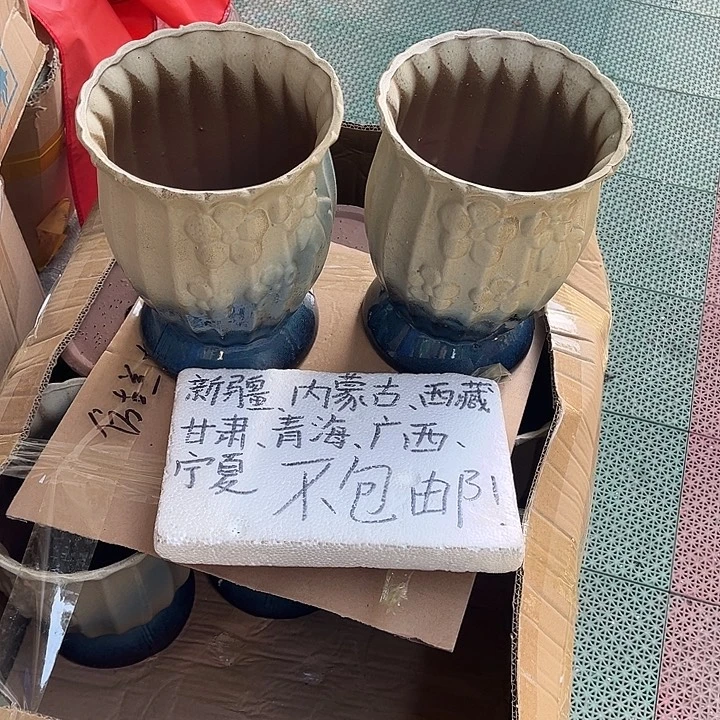 新疆、内蒙古、西藏
甘肃、青海、广西、
宁夏 不包邮